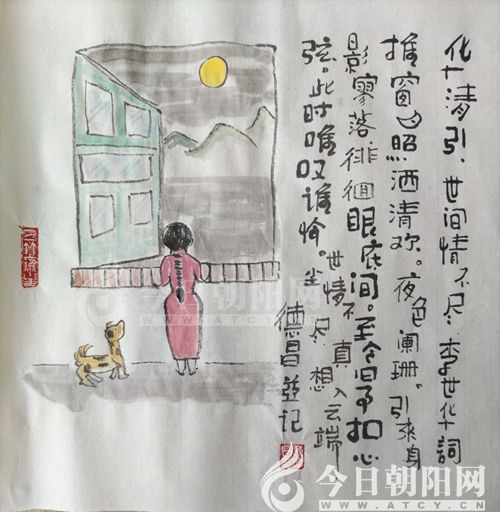 华清引、世间情不尽、李世华词
推窗月照洒清欢。夜色阑珊。引来身
影寥落，徘徊眼底间。至今扣心
弦。此时唯叹谁怜。尘
世情不尽，真想入云端
德昌并记
今日朝阳网
WWW.ATCY.CN
今日朝阳网
WWW.ATCY.CN